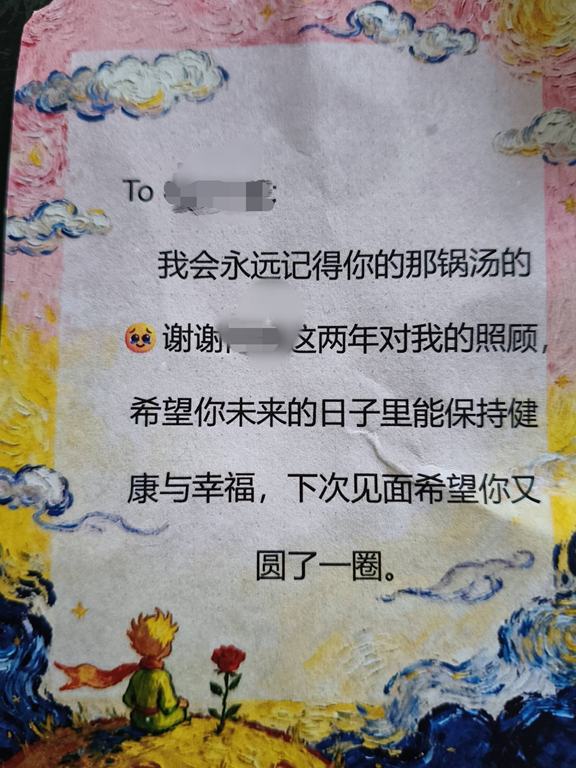 To
我会永远记得你的那锅汤的
🥹谢谢 这两年对我的照顾，
希望你未来的日子里能保持健
康与幸福，下次见面希望你又
圆了一圈。